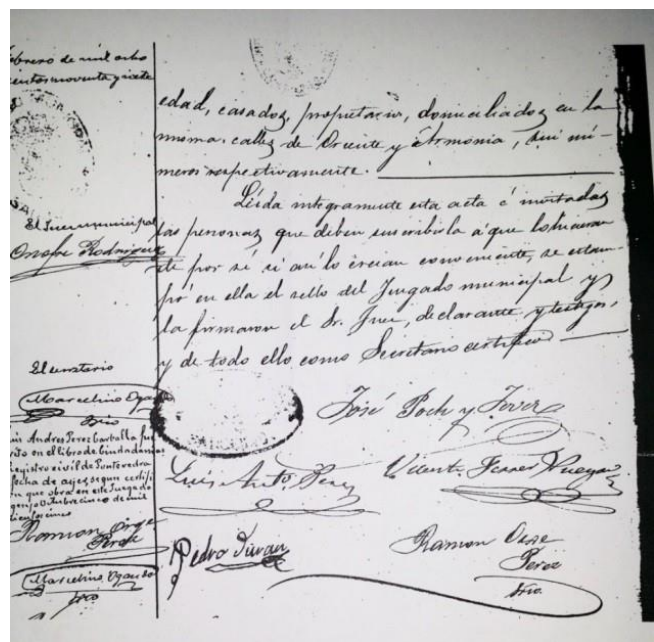 febrero de mil ocho
cientos noventa y siete
El Juez municipal
Onofre Rodriguez
El secretario
Marcelino Ogando
Srio
Luis Andres Perez Carballa
en el libro de Ciudadanias
Registro civil de Pontevedra
fecha de ayer segun certifi
que obra en este Juzgado
Octubre cinco de mil
Ramon Orge
Perez
Marcelino Ogando
Srio
edad, casados, propietarios, domiciliados en la
misma, calles de Oriente y Armonia, sin nú-
meros respectivamente.
Leida integramente esta acta é invitadas
las personas que deben suscribirla á que la leyeran
de por sí si así lo creian conveniente, se estam-
pó en ella el sello del Juzgado municipal y
la firmaron el Sr. Juez, declarante y testigos,
y de todo ello como Secretario certifico
José Poch y
Luis Anto. Perez
Vicente Ferrer
Pedro Duran
Ramon Orge
Perez
Srio.